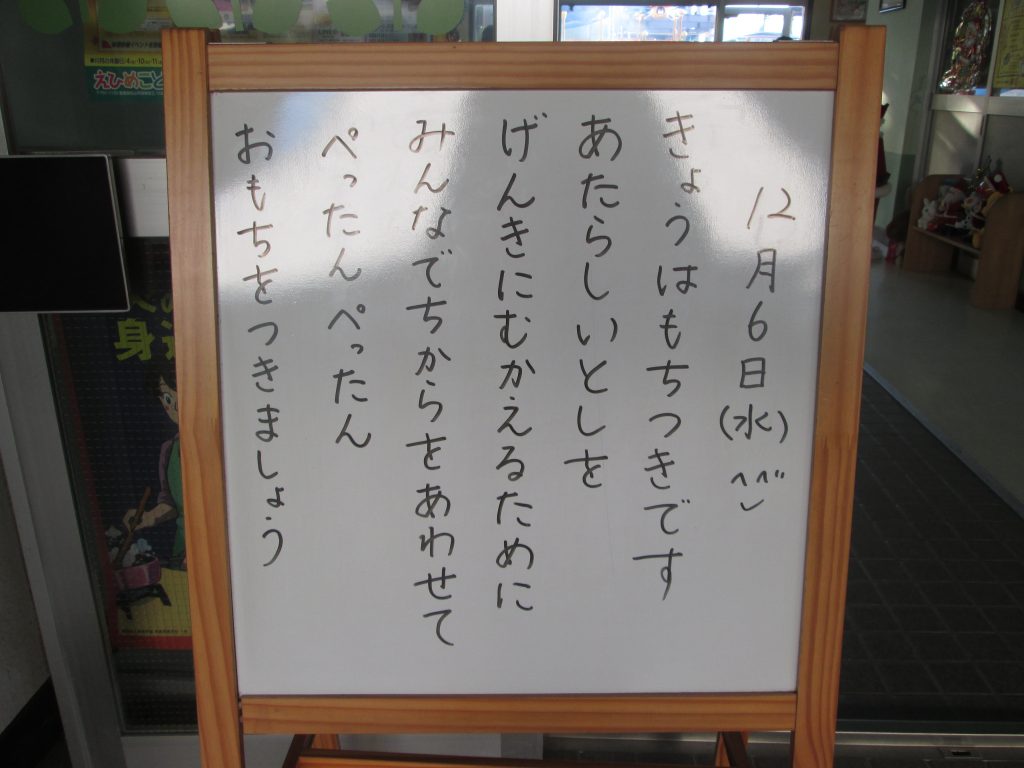 12月6日(水)
きょうはもちつきです
あたらしいとしを
げんきにむかえるために
みんなでちからをあわせて
ぺったんぺったん
おもちをつきましょう
えひめこと
身